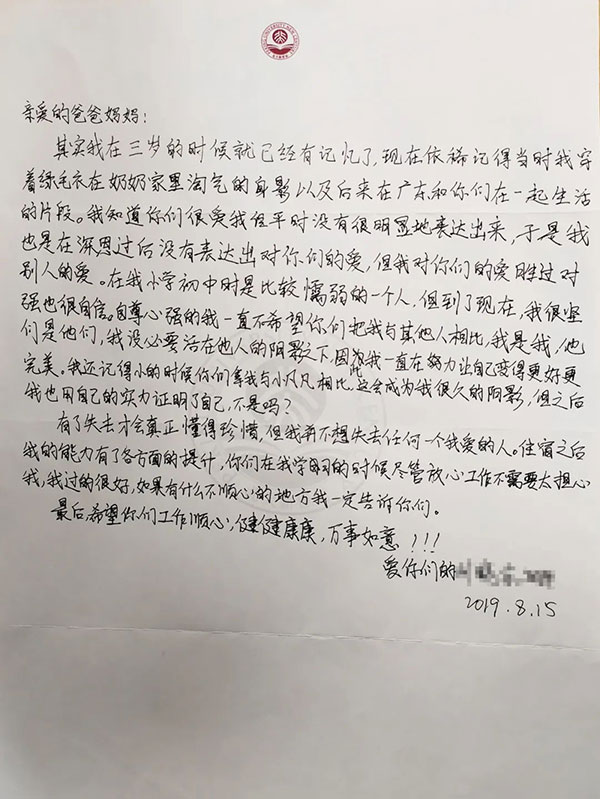 亲爱的爸爸妈妈：
其实我在三岁的时候就已经有记忆了，现在依稀记得当时我穿
着绿毛衣在奶奶家里淘气的身影以及后来在广东和你们在一起生活
的片段。我知道你们很爱我但平时没有很明显地表达出来，于是我
也是在深思过后没有表达出对你们的爱，但我对你们的爱胜过对
别人的爱。在我小学初中时是比较懦弱的一个人，但到了现在，我很坚
强也很自信。自尊心强的我一直不希望你们把我与其他人相比，我是我，他
们是他们，我没必要活在他人的阴影之下，因为我一直在努力让自己变得更好更
完美。我还记得小的时候你们拿我与小凡凡相比，这会成为我很久的阴影，但之后
我也用自己的实力证明了自己，不是吗？
有了失去才会真正懂得珍惜，但我再不想失去任何一个我爱的人。住宿之后
我的能力有了各方面的提升，你们在我学习的时候尽管放心工作不需要太担心
我，我过的很好，如果有什么不顺心的地方我一定告诉你们。
最后，希望你们工作顺心，健健康康，万事如意！！！
爱你们的
2019.8.15